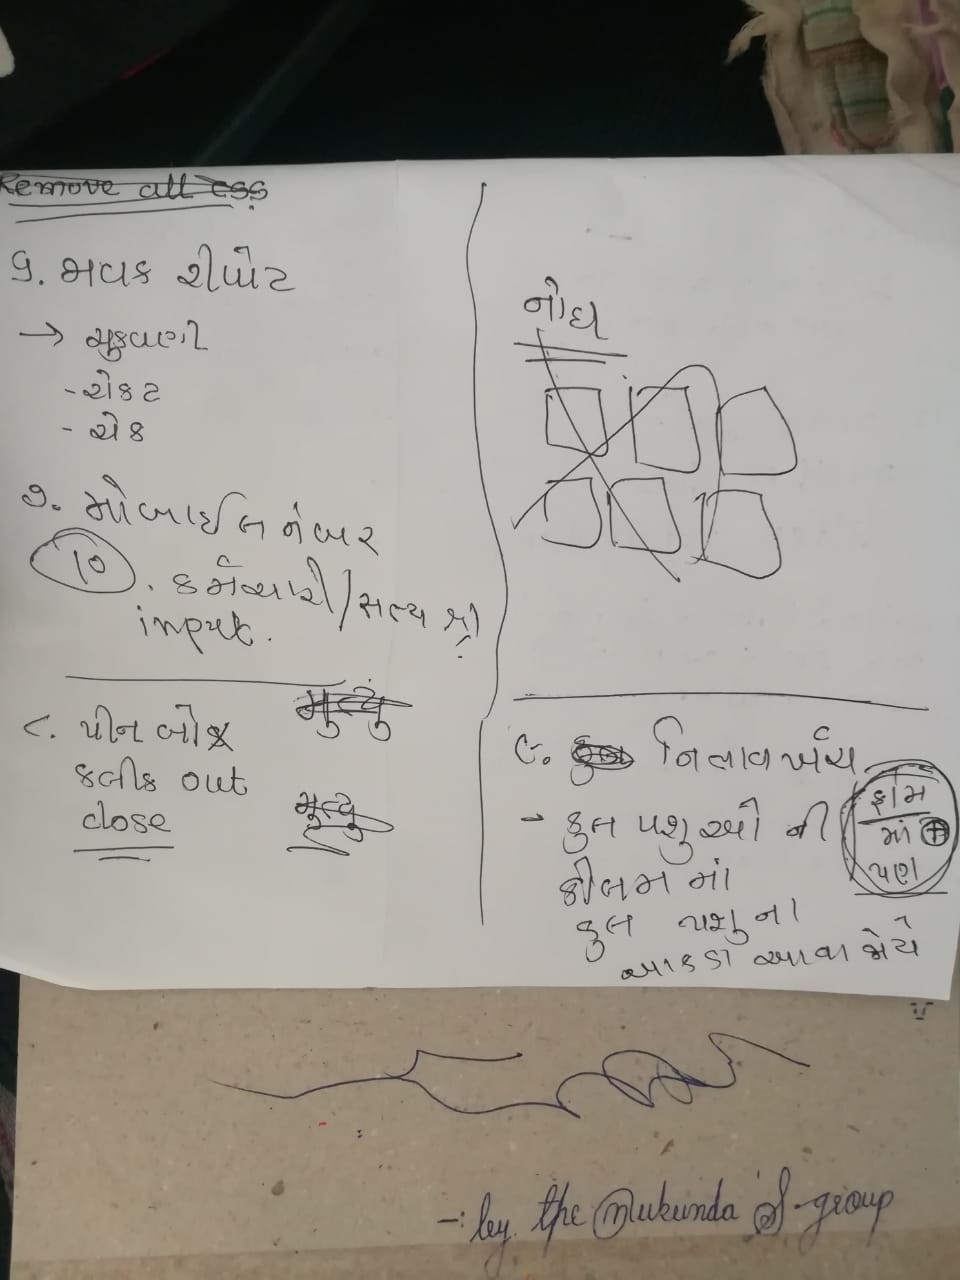 Remove all ess
૬. આવક રીપોર્ટ
→ ચુકવણી
- રોકડ
- ચેક
૭. મોબાઈલ નંબર
10
. કર્મચારી/સભ્ય શ્રી
input.
૮. પીન બોક્ષ
કલીક out
close
મૃત્યુ
મૃત્યુ
નોંધ
૯. નિભાવ ખર્ચ
- કુલ પશુઓ ની
કોલમ માં
કુલ પશુના
આકડા આવવા જોયે
ફોર્મ
માં +
પણ
-: by the Mukunda's group